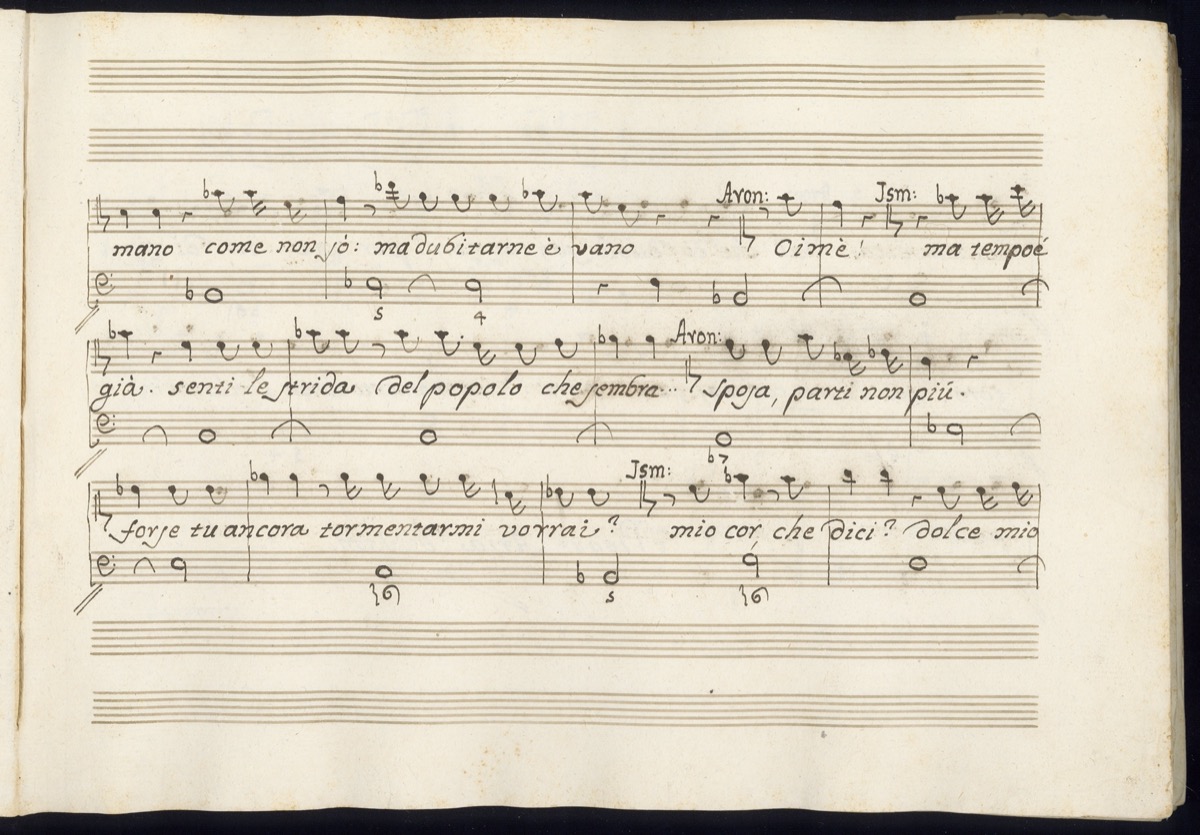 Aron: Jsm:
mano come non sò: ma dubitarne è vano Oimè! ma tempo é
5 4
Aron:
già. senti le strida del popolo che sembra.. sposa, parti non più.
b7
Jsm:
forse tu ancora tormentarmi vorrai? mio cor, che dici? dolce mio
16 5 16